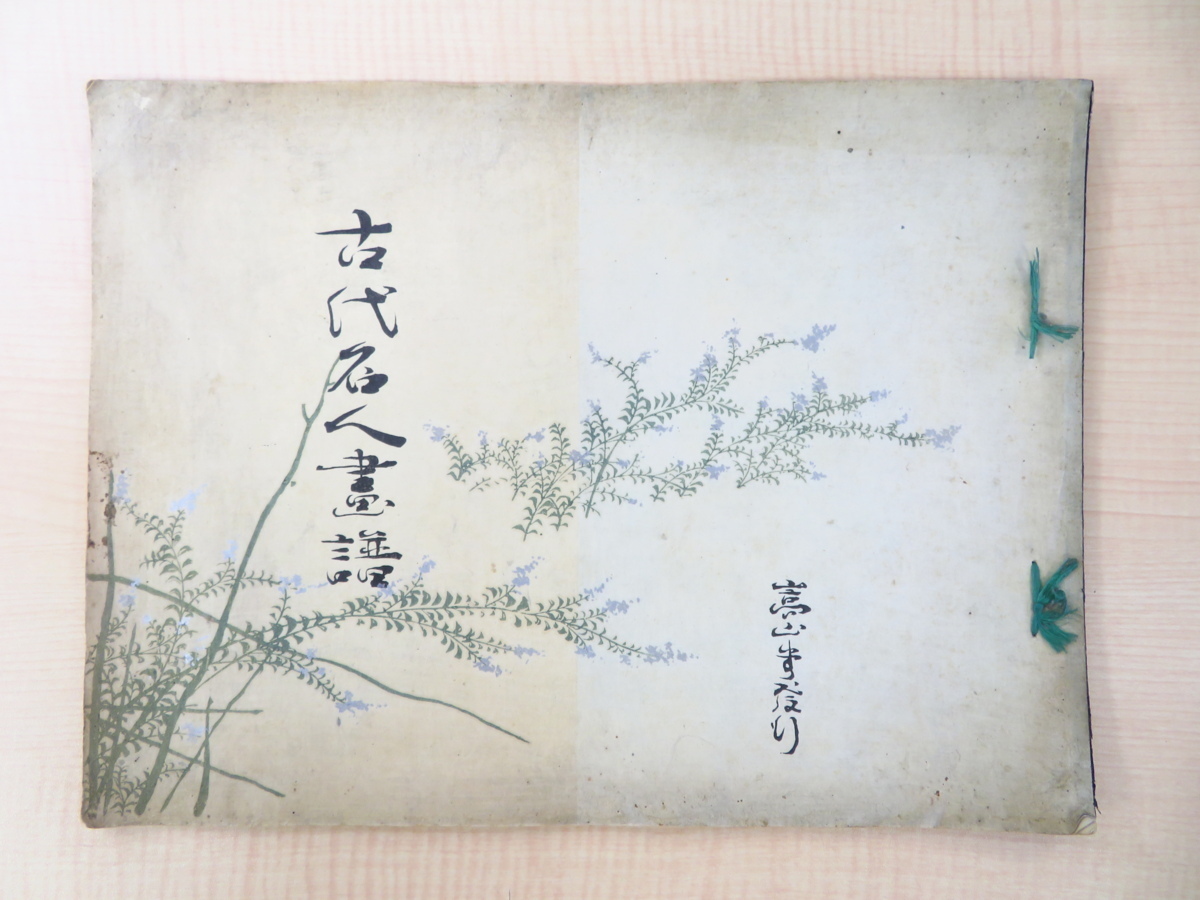 嵩山堂發行
古代名人畫譜